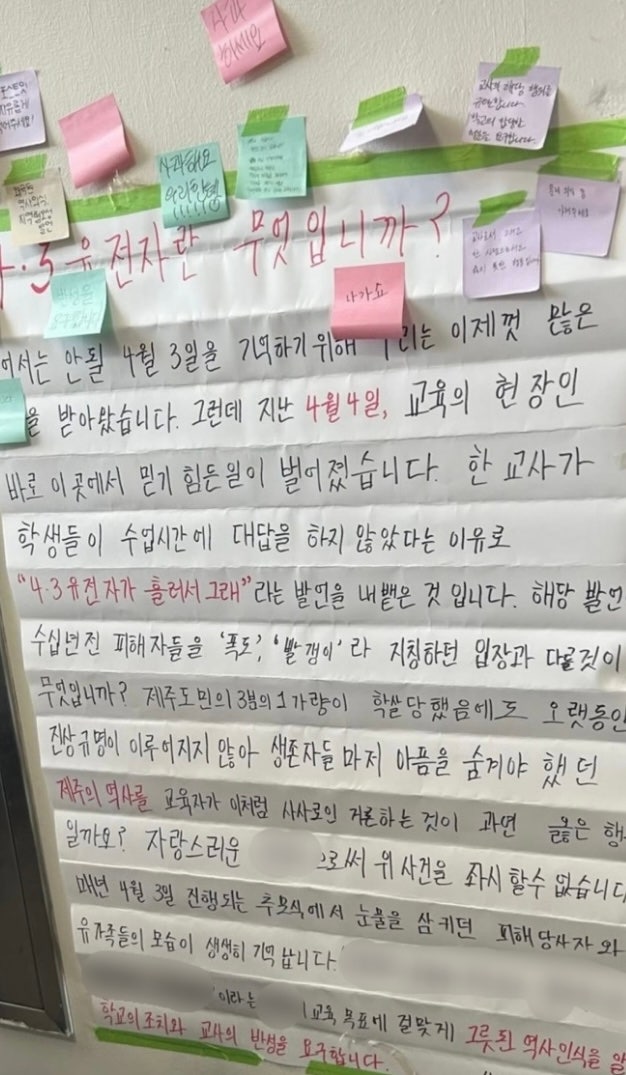 사과
하세요
사과해요
우리한텐
!!!!!!
나가요
반성을
교사의 해당 행위를
규탄합니다
4·3 유전자란 무엇입니까?
어서는 안될 4월 3일을 기억하기 위해 우리는 이제껏 많은
을 받아왔습니다. 그런데 지난 4월 4일, 교육의 현장인
바로 이곳에서 믿기 힘든일이 벌어졌습니다. 한 교사가
학생들이 수업시간에 대답을 하지 않았다는 이유로
"4·3 유전자가 흘러서 그래" 라는 발언을 내뱉은 것 입니다. 해당 발언
수십년전 피해자들을 '폭도', '빨갱이' 라 지칭하던 입장과 다를것이
무엇입니까? 제주도민의 3분의 1 가량이 학살 당했음에도 오랫동안
진상규명이 이루어지지 않아 생존자들 마저 아픔을 숨겨야 했던
제주의 역사를 교육자가 이처럼 사사로이 거론하는 것이 과연 옳은 행
일까요? 자랑스러운 으로써 위 사건을 좌시 할수 없습니다
매년 4월 3일 진행되는 추모식에서 눈물을 삼키던 피해당사자와
유가족들의 모습이 생생히 기억 납니다.
'이라는 교육 목표에 걸맞게 그릇된 역사인식을
학교의 조치와 교사의 반성을 요구합니다.